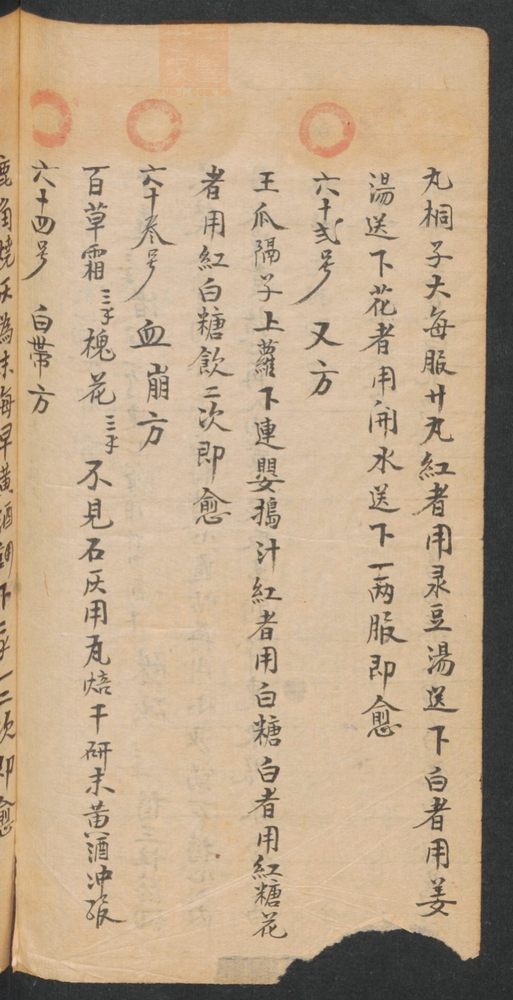 丸桐子大每服廿丸紅者用彔豆湯送下白者用姜
湯送下花者用開水送下一兩服即愈
六十弍号 又方
王瓜隔子上蘿下連嬰搗汁紅者用白糖白者用紅糖花
者用紅白糖飲二次即愈
六十叁号 血崩方
百草霜三錢槐花三錢不見石灰用瓦焙干研末黄酒冲服
六十四号 白帶方
鹿角燒灰為末每早黄酒調下三錢一二次即愈